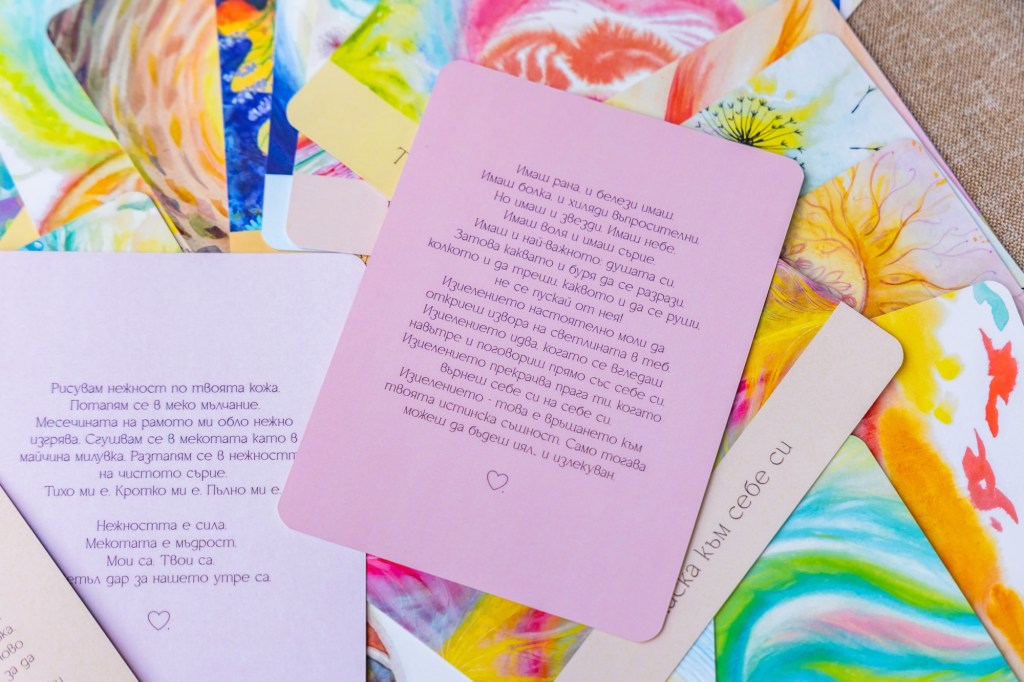 Имаш рана, и белези имаш.
Имаш болка, и хиляди въпросителни.
Но имаш и звезди. Имаш небе.
Имаш воля и имаш сърце.
Имаш и най-важното: душата си.
Затова каквато и буря да се разрази,
колкото и да трещи, каквото и да се руши,
не се пускай от нея!
Изцелението настоятелно моли да
откриеш извора на светлината в теб
Изцелението идва, когато се вгледаш
навътре и поговориш прямо със себе си.
Изцелението прекрачва прага ти, когато
върнеш себе си на себе си.
Изцеление - това е връщането към
твоята истинска същност. Само тогава
можеш да бъдеш цял... и излекуван.
Рисувам нежност по твоята кожа.
Потапям се в меко мълчание.
Месечината на рамото ми обло нежно
изгрява. Сгушвам се в мекотата като в
майчина милувка. Разтапям се в нежността
на чистото сърце.
Тихо ми е. Кротко ми е. Пълно ми е.
Нежността е сила.
Мекотата е мъдрост.
Мои са. Твои са.
дар за нашето утре са.
към себе си
за да